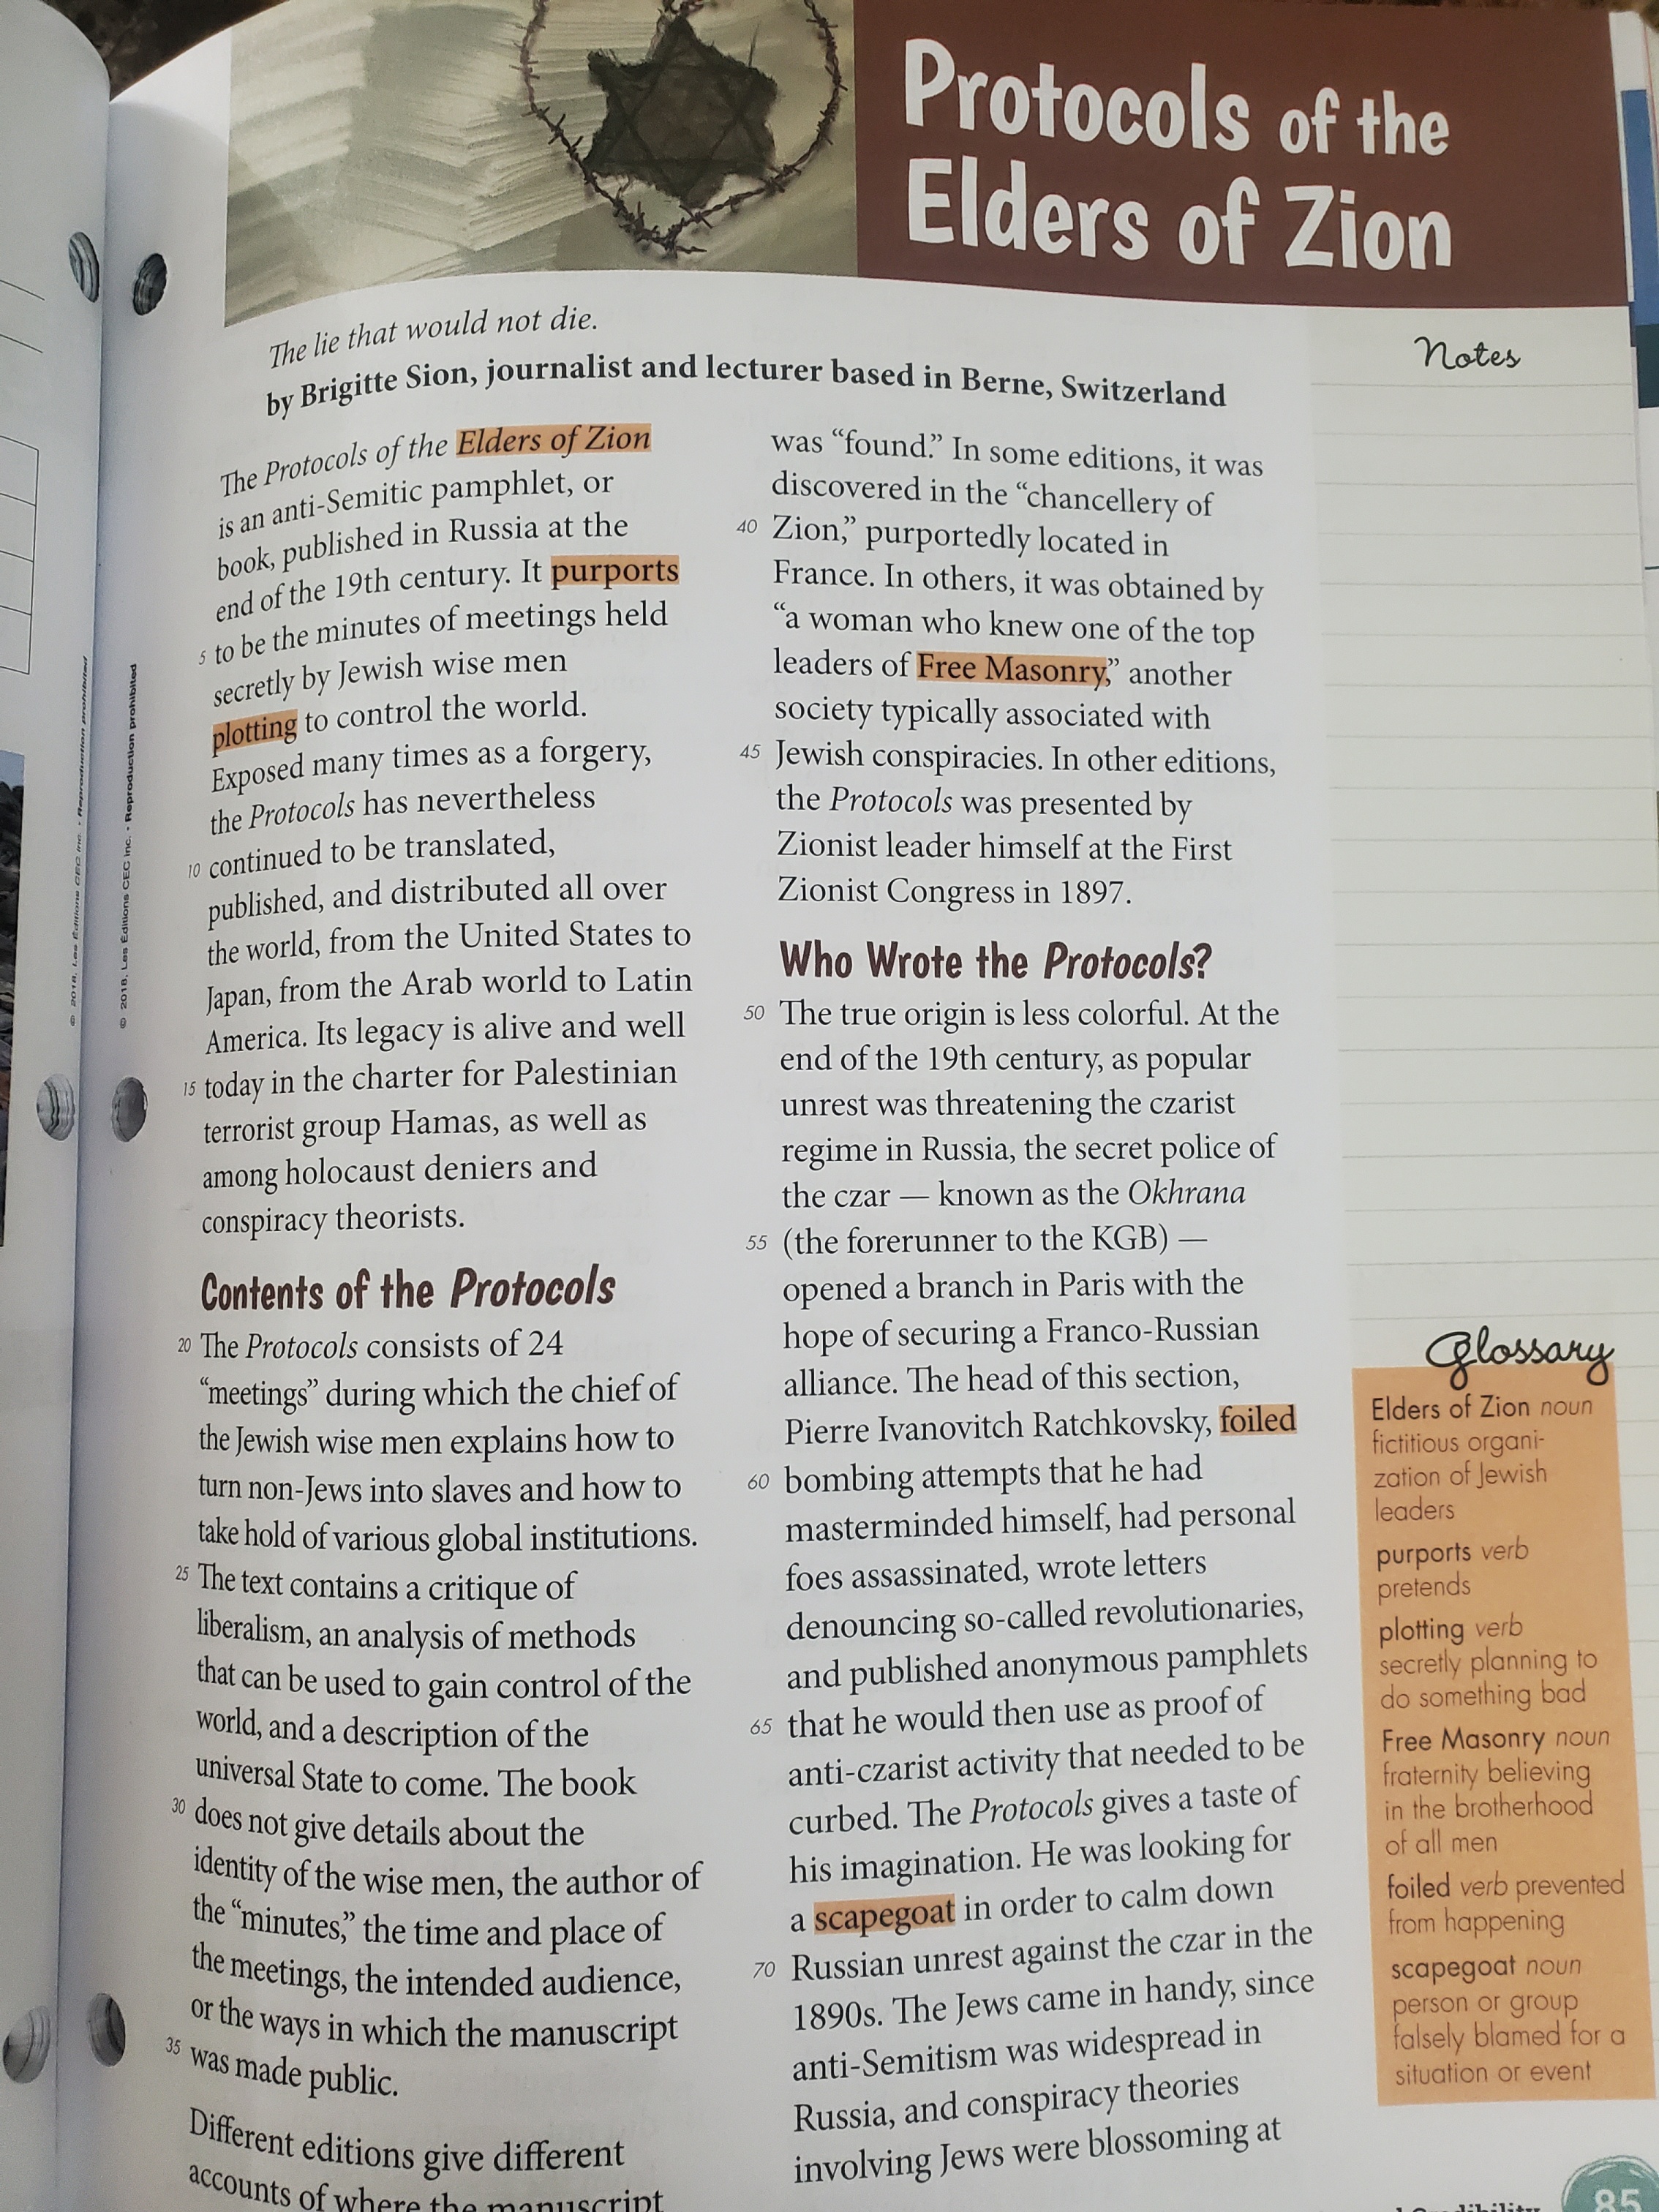 Protocols of the
Elders of Zion
The lie that would not die.
by Brigitte Sion, journalist and lecturer based in Berne, Switzerland
The Protocols of the Elders of Zion
is an anti-Semitic pamphlet, or
book, published in Russia at the
end of the 19th century. It purports
5 to be the minutes of meetings held
secretly by Jewish wise men
plotting to control the world.
Exposed many times as a forgery,
the Protocols has nevertheless
10 continued to be translated,
published, and distributed all over
the world, from the United States to
Japan, from the Arab world to Latin
America. Its legacy is alive and well
15 today in the charter for Palestinian
terrorist group Hamas, as well as
among holocaust deniers and
conspiracy theorists.
Contents of the Protocols
20 The Protocols consists of 24
“meetings” during which the chief of
the Jewish wise men explains how to
turn non-Jews into slaves and how to
take hold of various global institutions.
25 The text contains a critique of
liberalism, an analysis of methods
that can be used to gain control of the
world, and a description of the
universal State to come. The book
30 does not give details about the
identity of the wise men, the author of
the “minutes,” the time and place of
the meetings, the intended audience,
or the ways in which the manuscript
35 was made public.
Different editions give different
accounts of where the manuscript
was “found.” In some editions, it was
discovered in the “chancellery of
40 Zion,” purportedly located in
France. In others, it was obtained by
“a woman who knew one of the top
leaders of Free Masonry,” another
society typically associated with
45 Jewish conspiracies. In other editions,
the Protocols was presented by
Zionist leader himself at the First
Zionist Congress in 1897.
Who Wrote the Protocols?
50 The true origin is less colorful. At the
end of the 19th century, as popular
unrest was threatening the czarist
regime in Russia, the secret police of
the czar — known as the Okhrana
55 (the forerunner to the KGB) —
opened a branch in Paris with the
hope of securing a Franco-Russian
alliance. The head of this section,
Pierre Ivanovitch Ratchkovsky, foiled
60 bombing attempts that he had
masterminded himself, had personal
foes assassinated, wrote letters
denouncing so-called revolutionaries,
and published anonymous pamphlets
65 that he would then use as proof of
anti-czarist activity that needed to be
curbed. The Protocols gives a taste of
his imagination. He was looking for
a scapegoat in order to calm down
70 Russian unrest against the czar in the
1890s. The Jews came in handy, since
anti-Semitism was widespread in
Russia, and conspiracy theories
involving Jews were blossoming at
Notes
Glossary
Elders of Zion noun
fictitious organi-
zation of Jewish
leaders
purports verb
pretends
plotting verb
secretly planning to
do something bad
Free Masonry noun
fraternity believing
in the brotherhood
of all men
foiled verb prevented
from happening
scapegoat noun
person or group
falsely blamed for a
situation or event
© 2018, Les Éditions CEC inc. • Reproduction prohibited
© 2018, Les Éditions CEC inc. • Reproduction prohibited
Credibility
85